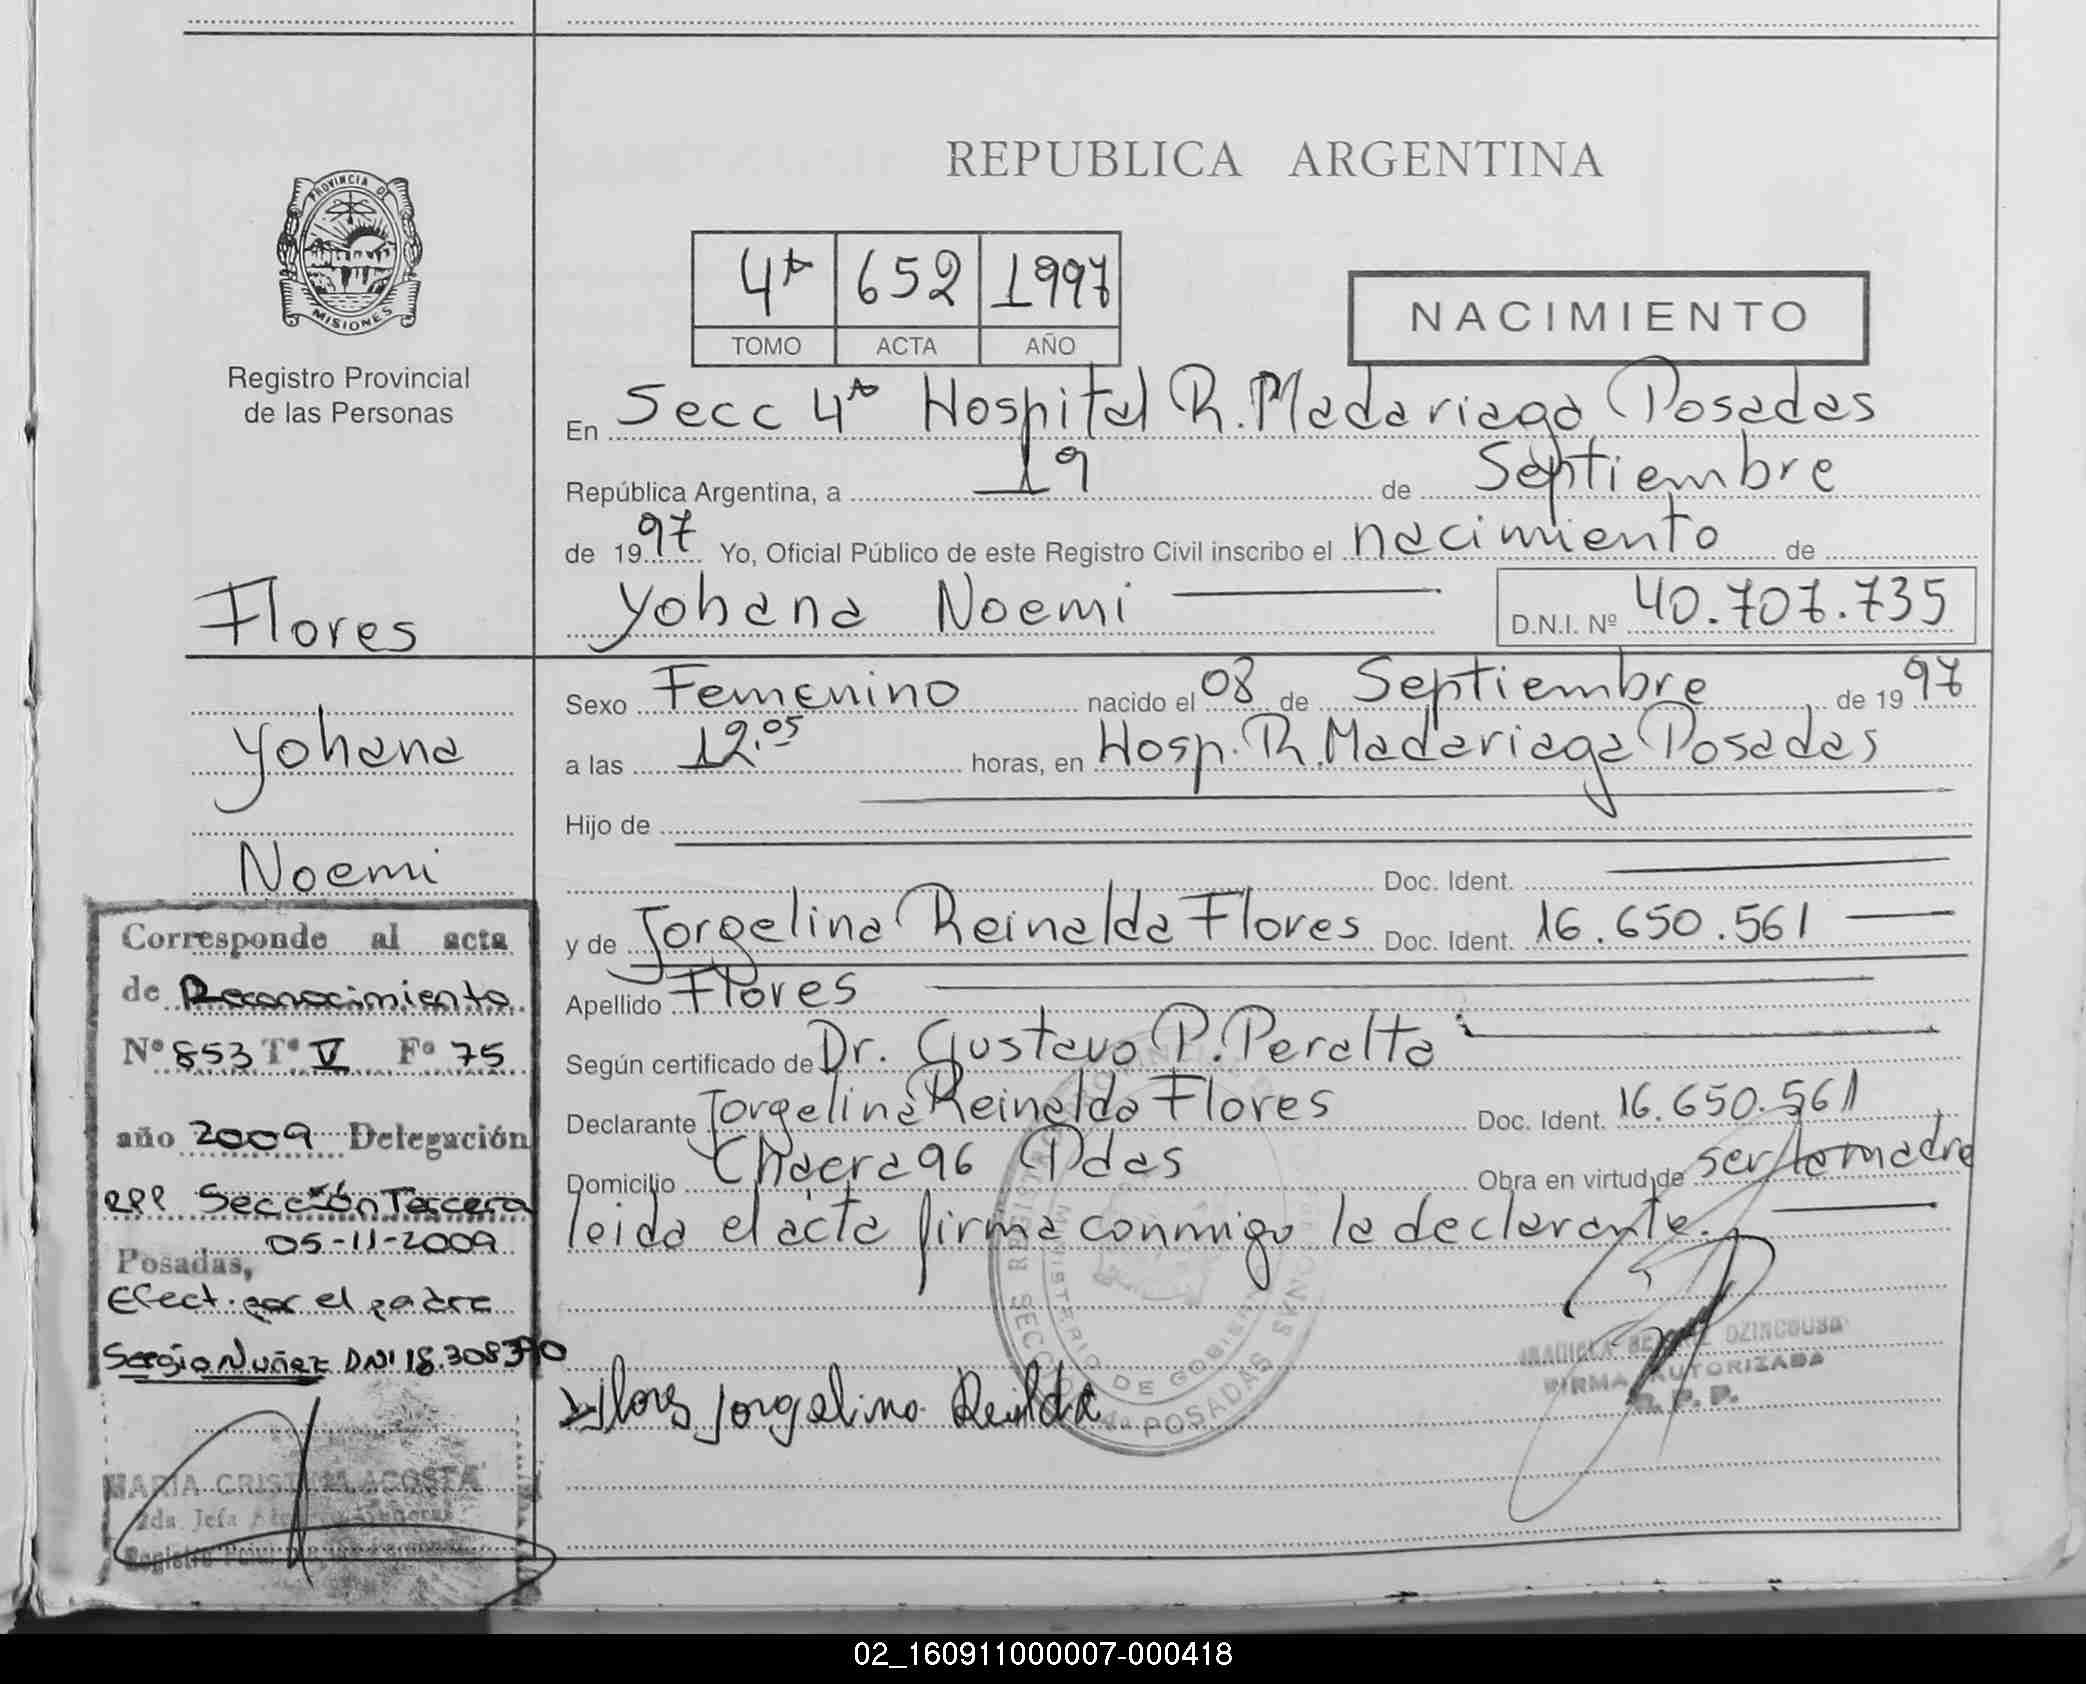 REPUBLICA ARGENTINA
PROVINCIA DE
MISIONES
Registro Provincial
de las Personas
4ta 652 1997
TOMO ACTA AÑO
NACIMIENTO
En Secc 4ta Hospital R. Madariaga Posadas
República Argentina, a 19 de Septiembre
de 1997 Yo, Oficial Público de este Registro Civil inscribo el nacimiento de
Yohana Noemi D.N.I. Nº 40.707.735
Sexo Femenino nacido el 08 de Septiembre de 1997
a las 12.05 horas, en Hosp. R. Madariaga Posadas
Hijo de
Doc. Ident.
y de Jorgelina Reinalda Flores Doc. Ident. 16.650.561
Apellido Flores
Según certificado de Dr. Gustavo P. Peralta
Declarante Jorgelina Reinalda Flores Doc. Ident. 16.650.561
Domicilio Chacra 96 Pdas Obra en virtud de ser la madre
leida el acta firma conmigo la declarante.
Flores Jorgelina
FIRMA AUTORIZADA
R. P. P.
MINISTERIO DE GOBIERNO
POSADAS
Flores
Yohana
Noemi
Corresponde al acta
de Reconocimiento
Nº 853 Tº V Fº 75
año 2009 Delegación
RPP Sección Tercera
05-11-2009
Posadas,
Efect. por el padre
Sergio Nuñez DNI 18.308370
MARIA CRISTINA ACOSTA
2da. Jefa
02_160911000007-000418